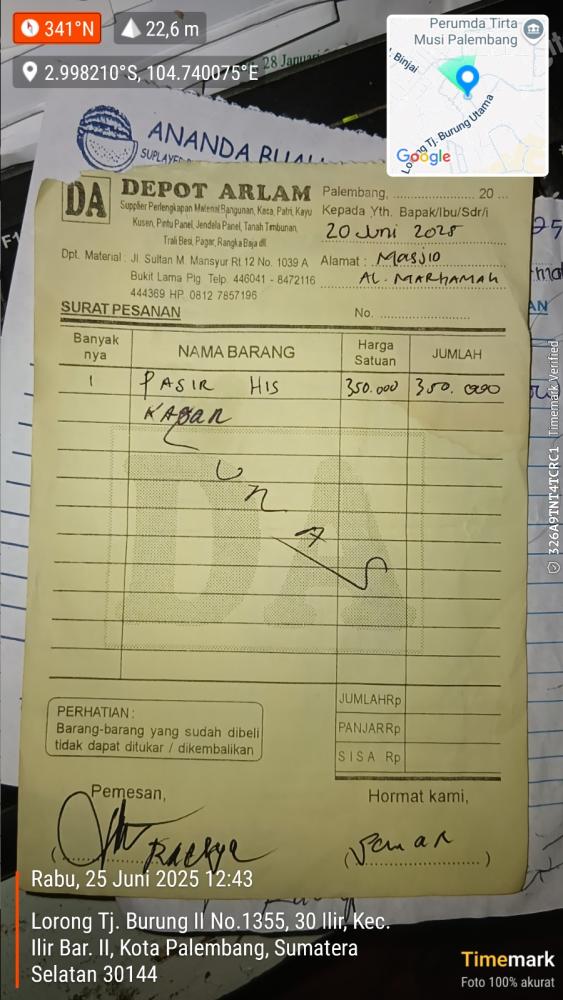 341°N
22,6 m
2.998210°S, 104.740075°E
28 Januari
Perumda Tirta
Musi Palembang
Binjai
Lorong Tj. Burung Utama
Google
ANANDA
DA
DEPOT ARLAM
Supplier Perlengkapan Material Bangunan, Kaca, Patri, Kayu
Kusen, Pintu Panel, Jendela Panel, Tanah Timbunan,
Trali Besi, Pagar, Rangka Baja dll.
Dpt. Material : Jl. Sultan M. Mansyur Rt 12 No. 1039 A
Bukit Lama Plg. Telp. 446041 - 8472116
444369 HP. 0812 7857196
Palembang, .................... 20 ...
Kepada Yth. Bapak/Ibu/Sdr/i
20 Juni 2025
Alamat : Masjid
AL. MARHAMAH
SURAT PESANAN
No. ........................
Banyak nya NAMA BARANG Harga Satuan JUMLAH
1 PASIR HIS 350.000 350.000
KABAR
LUNAS
DA
JUMLAH Rp
PANJAR Rp
SISA Rp
PERHATIAN :
Barang-barang yang sudah dibeli
tidak dapat ditukar / dikembalikan
Pemesan,
Hormat kami,
Rabu, 25 Juni 2025 12:43
Lorong Tj. Burung II No.1355, 30 Ilir, Kec.
Ilir Bar. II, Kota Palembang, Sumatera
Selatan 30144
Timemark
Foto 100% akurat
326A9TNT4TCRC1 Timemark Verified